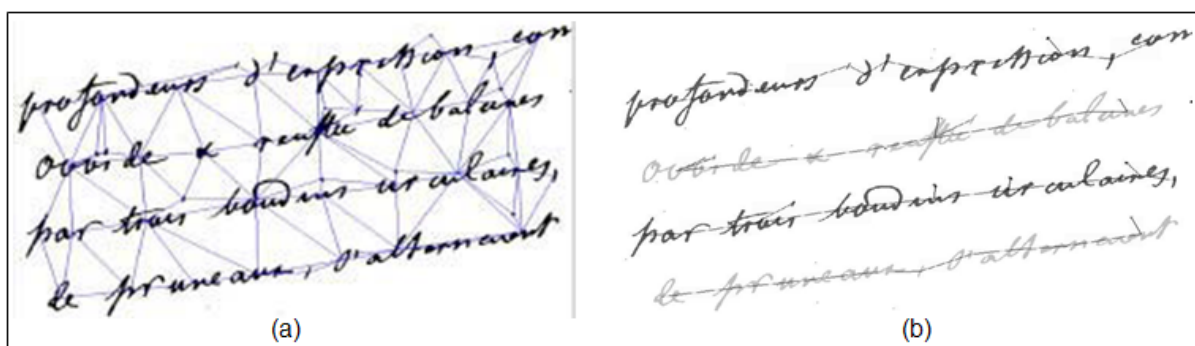 profondeurs d'expression, com
ovoïde & renflé de balaines
par trois boudins circulaires,
de pruneaux, s'alternent
(a)
profondeurs d'expression, com
ovoïde & renflé de balaines
par trois boudins circulaires,
de pruneaux, s'alternent
(b)